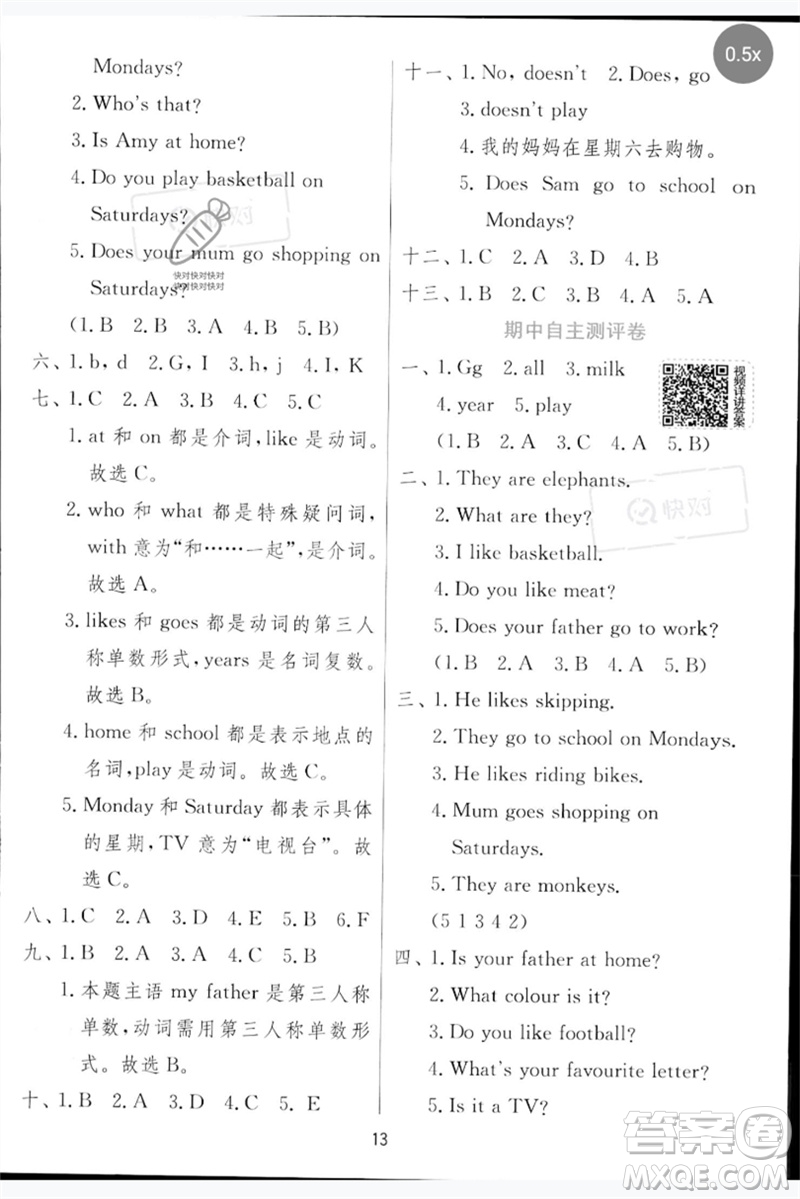 Mondays?
2. Who's that?
3. Is Amy at home?
4. Do you play basketball on
Saturdays?
5. Does your mum go shopping on
Saturdays?
(1. B 2. B 3. A 4. A 5. B)
六、1. b, d 2. G, I 3. h, j 4. I, K
七、1. C 2. A 3. B 4. C 5. C
1. at 和 on 都是介词, like 是动词。
故选 C。
2. who 和 what 都是特殊疑问词,
with 意为“和……一起”, 是介词。
故选 A。
3. likes 和 goes 都是动词的第三人
称单数形式, years 是名词复数。
故选 B。
4. home 和 school 都是表示地点的
名词, play 是动词。故选 C。
5. Monday 和 Saturday 都表示具体
的星期, TV 意为“电视台”。故
选 C。
八、1. C 2. A 3. D 4. E 5. B 6. F
九、1. B 2. A 3. B 4. A 5. B
1. 本题主语 my father 是第三人称
单数, 动词需用第三人称单数形
式。故选 B。
十、1. B 2. A 3. D 4. C 5. E
十一、1. No, doesn't 2. Does, go
3. doesn't play
4. 我的妈妈在星期六去购物。
5. Does Sam go to school on
Mondays?
十二、1. C 2. A 3. D 4. B
十三、1. B 2. C 3. B 4. A 5. A
期中自主测评卷
一、1. Gg 2. all 3. milk
4. year 5. play
(1. B 2. A 3. A 4. A 5. B)
二、1. They are elephants.
2. What are they?
3. I like basketball.
4. Do you like meat?
5. Does your father go to work?
(1. B 2. A 3. A 4. B 5. B)
三、1. He likes skipping.
2. They go to school on Mondays.
3. He likes riding bikes.
4. Mum goes shopping on
Saturdays.
5. They are monkeys.
(5 1 3 4 2)
四、1. Is your father at home?
2. What colour is it?
3. Do you like football?
4. What's your favourite letter?
5. Is it a TV?
13
0.5x
视频详讲答案
快对
快对快对快对
快对快对快对
快对
答案圈
MXQE.COM